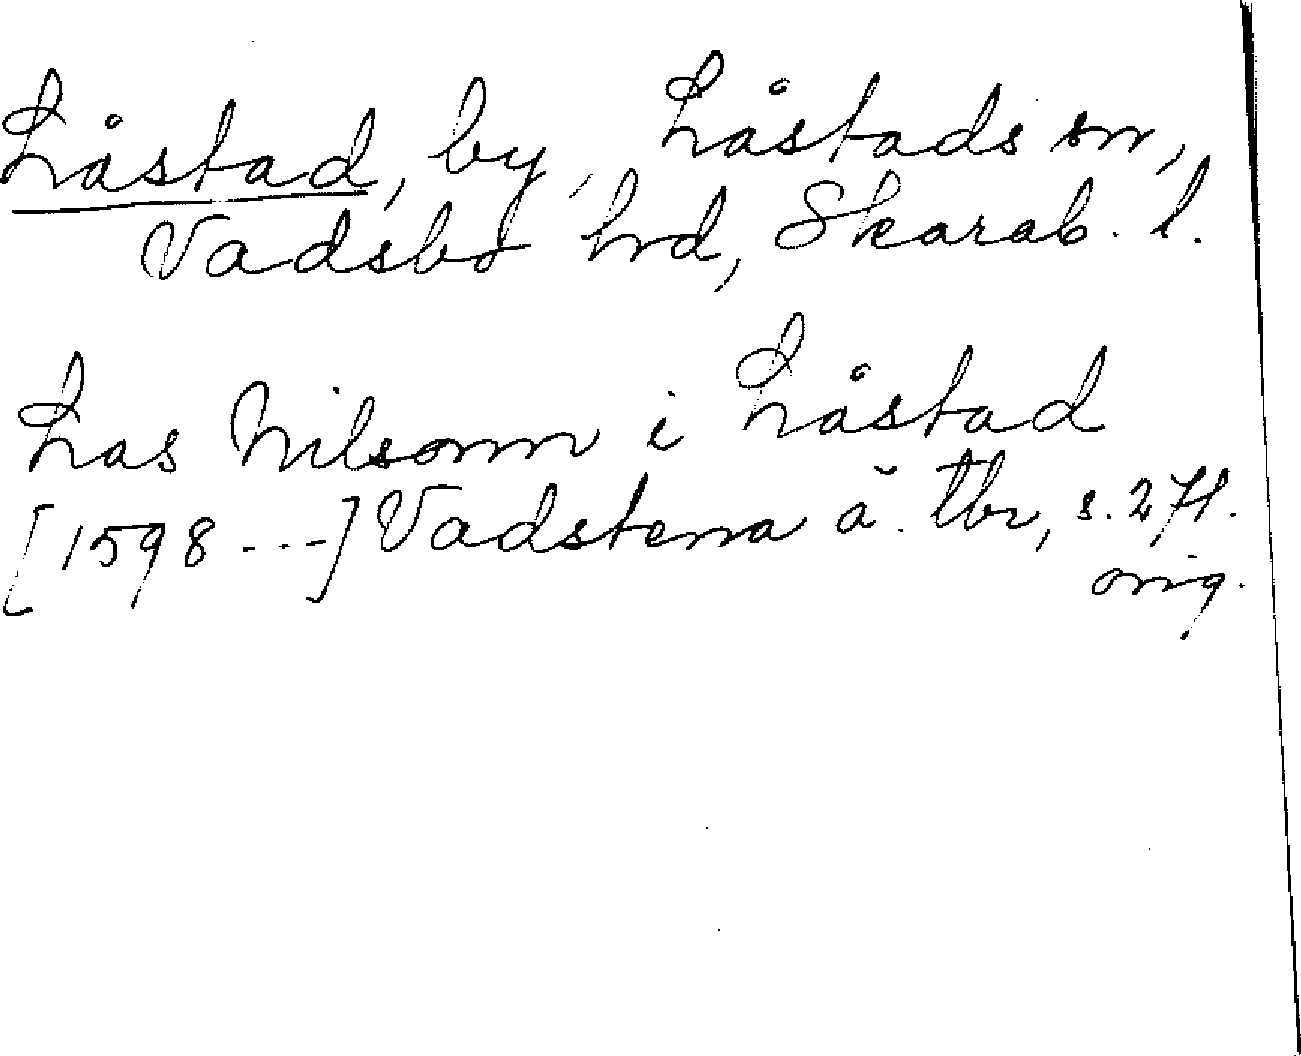 Låstad, by, Låstads sn,
Vadsbo hrd, Skarab. l.
Las Nilsonn i Låstad
[1598 ---] Vadstena ä. tbr, s. 271.
orig.